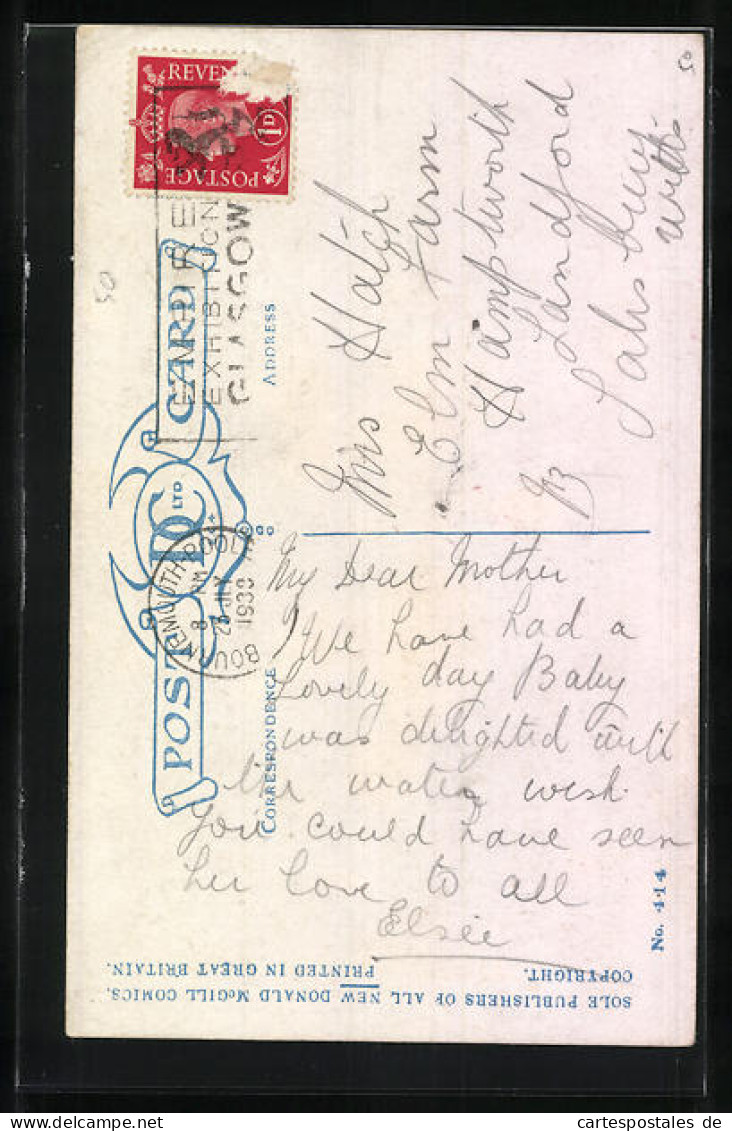 POST CARD
D C LTD
CORRESPONDENCE
ADDRESS
REVEN
POSTAGE
1D
EMPIRE
EXHIBITION
GLASGOW
BOURNEMOUTH-POOLE
8 PM
JLY
1938
Mrs Hatch
Elm Farm
Hamptworth
Landford
Salisbury
Wilts
My Dear Mother
We have had a
Lovely day Baby
was delighted with
the water wish
you could have seen
her love to all
Elsie
No. 414
SOLE PUBLISHERS OF ALL NEW DONALD McGILL COMICS.
COPYRIGHT.
PRINTED IN GREAT BRITAIN.
50
50
cartespostales.de